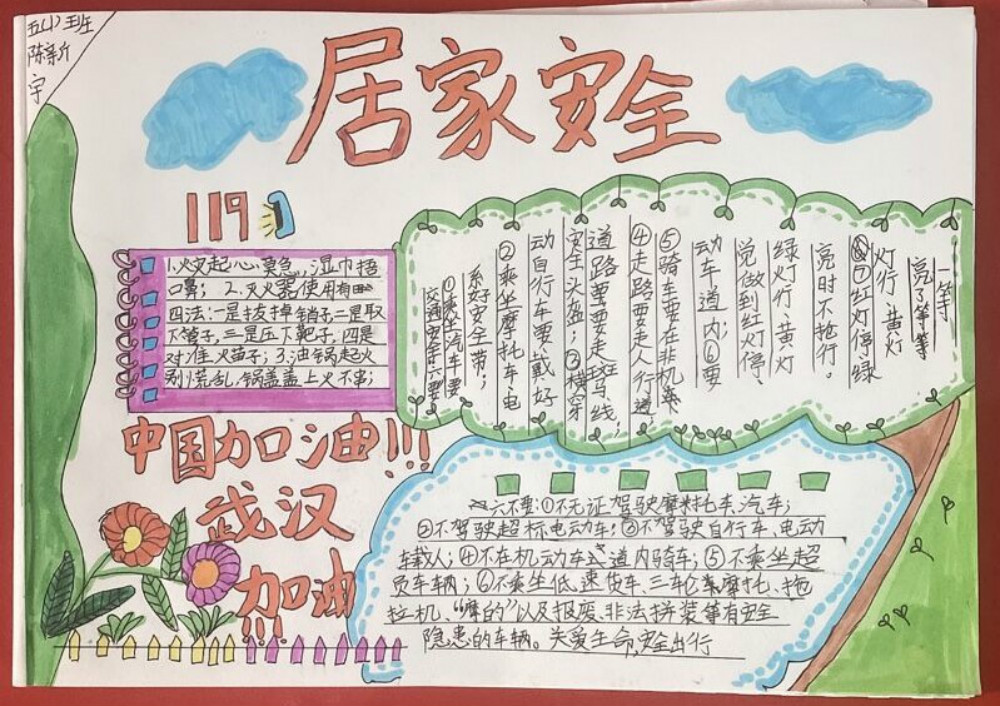 五(1)班
陈新
宇
居家安全
119
1.火灾起心莫急,湿巾捂
口鼻; 2.灭火器使用有
四法:一是拔掉销子二是取
下管子,三是压下靶子,四是
对准火苗子;3.油锅起火
别慌乱,锅盖盖上火不串;
交通安全六要
①乘坐汽车要
系好安全带;
②乘坐摩托车电
动自行车要戴好
安全头盔;③横穿
道路要要走斑马线;
④走路要走人行道
⑤骑车要在非机
动车道内;⑥要
觉做到红灯停、
绿灯行、黄灯
亮时不抢行。
口红灯停绿
灯行黄灯
亮了等等
一等
中国加油!!!
武汉
加油!!
六不要:①不无证驾驶摩托车、汽车;
②不驾驶超标电动车;③不驾驶自行车、电动
车载人;④不在机动车道内骑车;⑤不乘坐超
员车车辆;⑥不乘坐低速货车、三轮摩托、拖
拉机、“摩的”以及报废、非法拼装等有安全
隐患的车辆。关爱生命,安全出行